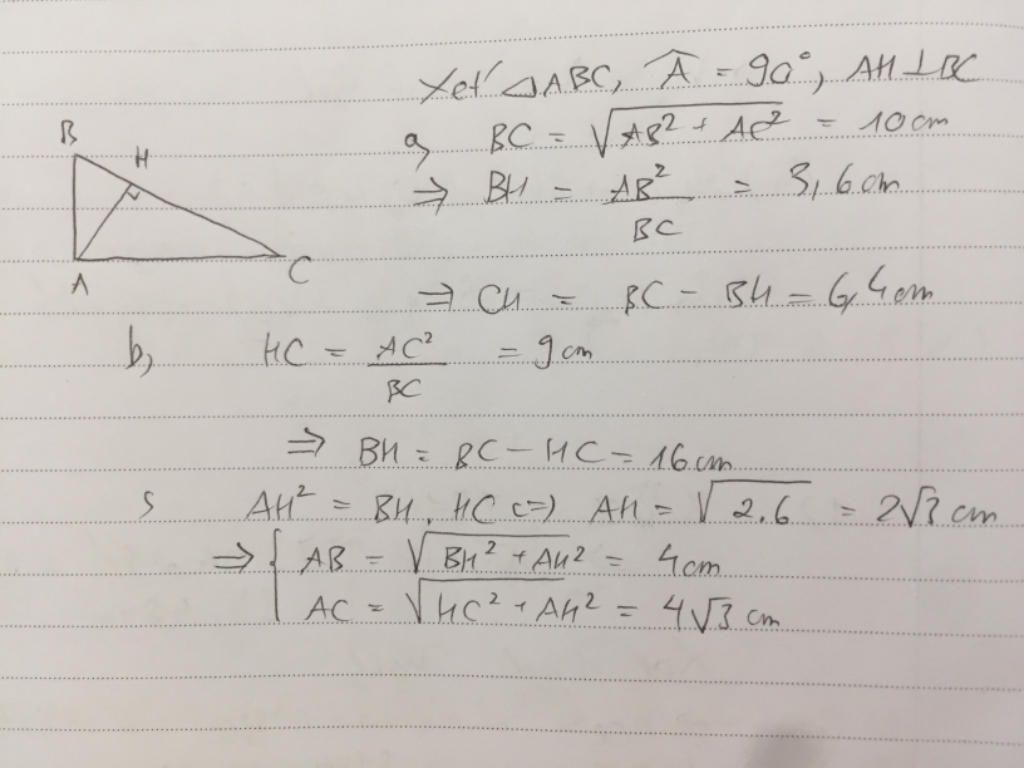 Xét △ABC, Â = 90°, AH ⊥ BC
B
H
A
C
a, BC = √(AB² + AC²) = 10 cm
⇒ BH = AB²/BC = 3,6 cm
⇒ CH = BC - BH = 6,4 cm
b, HC = AC²/BC = 9 cm
⇒ BH = BC - HC = 16 cm
AH² = BH . HC <=> AH = √2.6 = 2√3 cm
⇒ { AB = √(BH² + AH²) = 4 cm
AC = √(HC² + AH²) = 4√3 cm